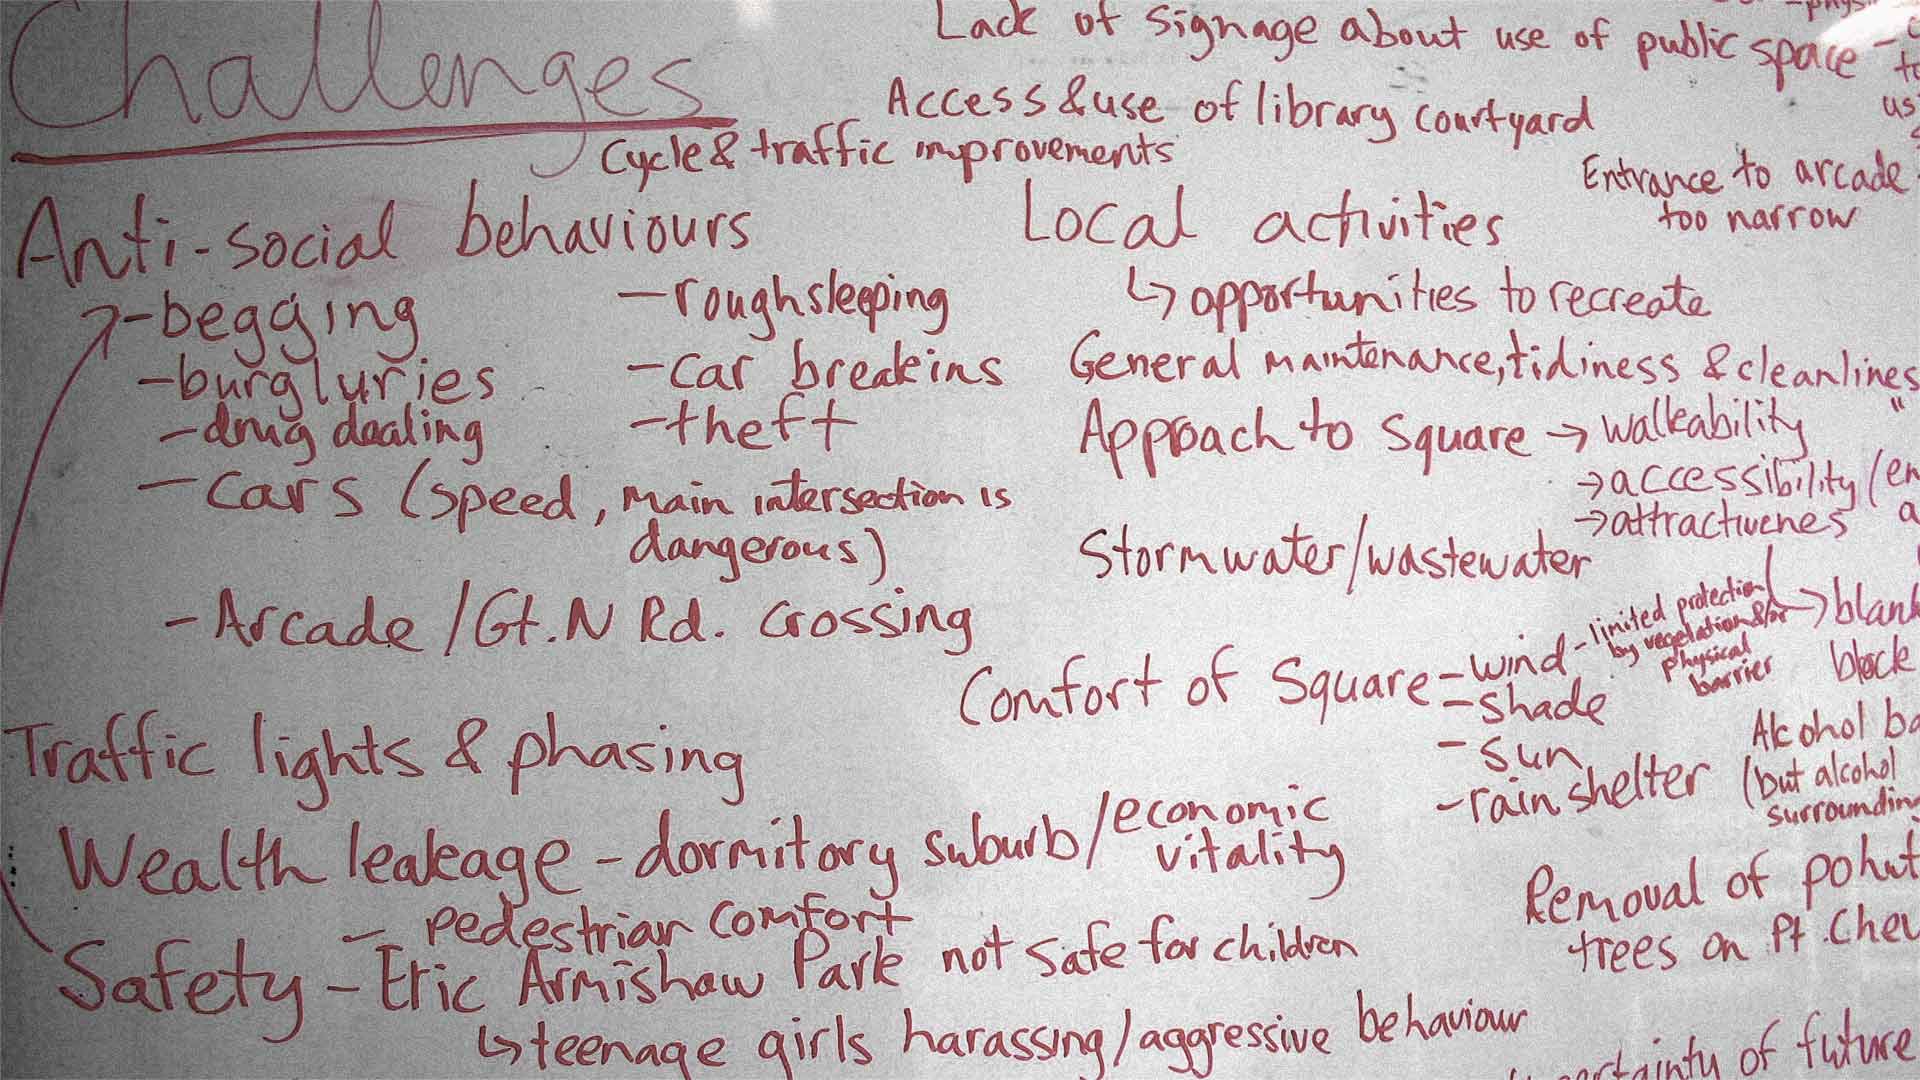 Challenges
Lack of signage about use of public space
Access & use of library courtyard
Cycle & traffic improvements
Entrance to arcade
too narrow
Anti-social behaviours
- begging
- burgluries
- drug dealing
- roughsleeping
- car breakins
- theft
- cars (speed, main intersection is
dangerous)
- Arcade / Gt. N Rd. crossing
Traffic lights & phasing
Wealth leakage - dormitory suburb / economic
vitality
- pedestrian comfort
Safety - Eric Armishaw Park not safe for children
↳ teenage girls harassing/aggressive behaviour
Local activities
↳ opportunities to recreate
General maintenance, tidiness & cleanlines
Approach to square → walkability
→ accessibility / (en
→ attractivenes
Stormwater/wastewater
→ blank
block
Comfort of Square - wind - limited protection
by vegetation &/or
physical
barrier
- shade
- sun
- rain shelter
Alcohol ba
(but alcohol
surrounding
Removal of pohut
trees on Pt. Chev
ertainty of future